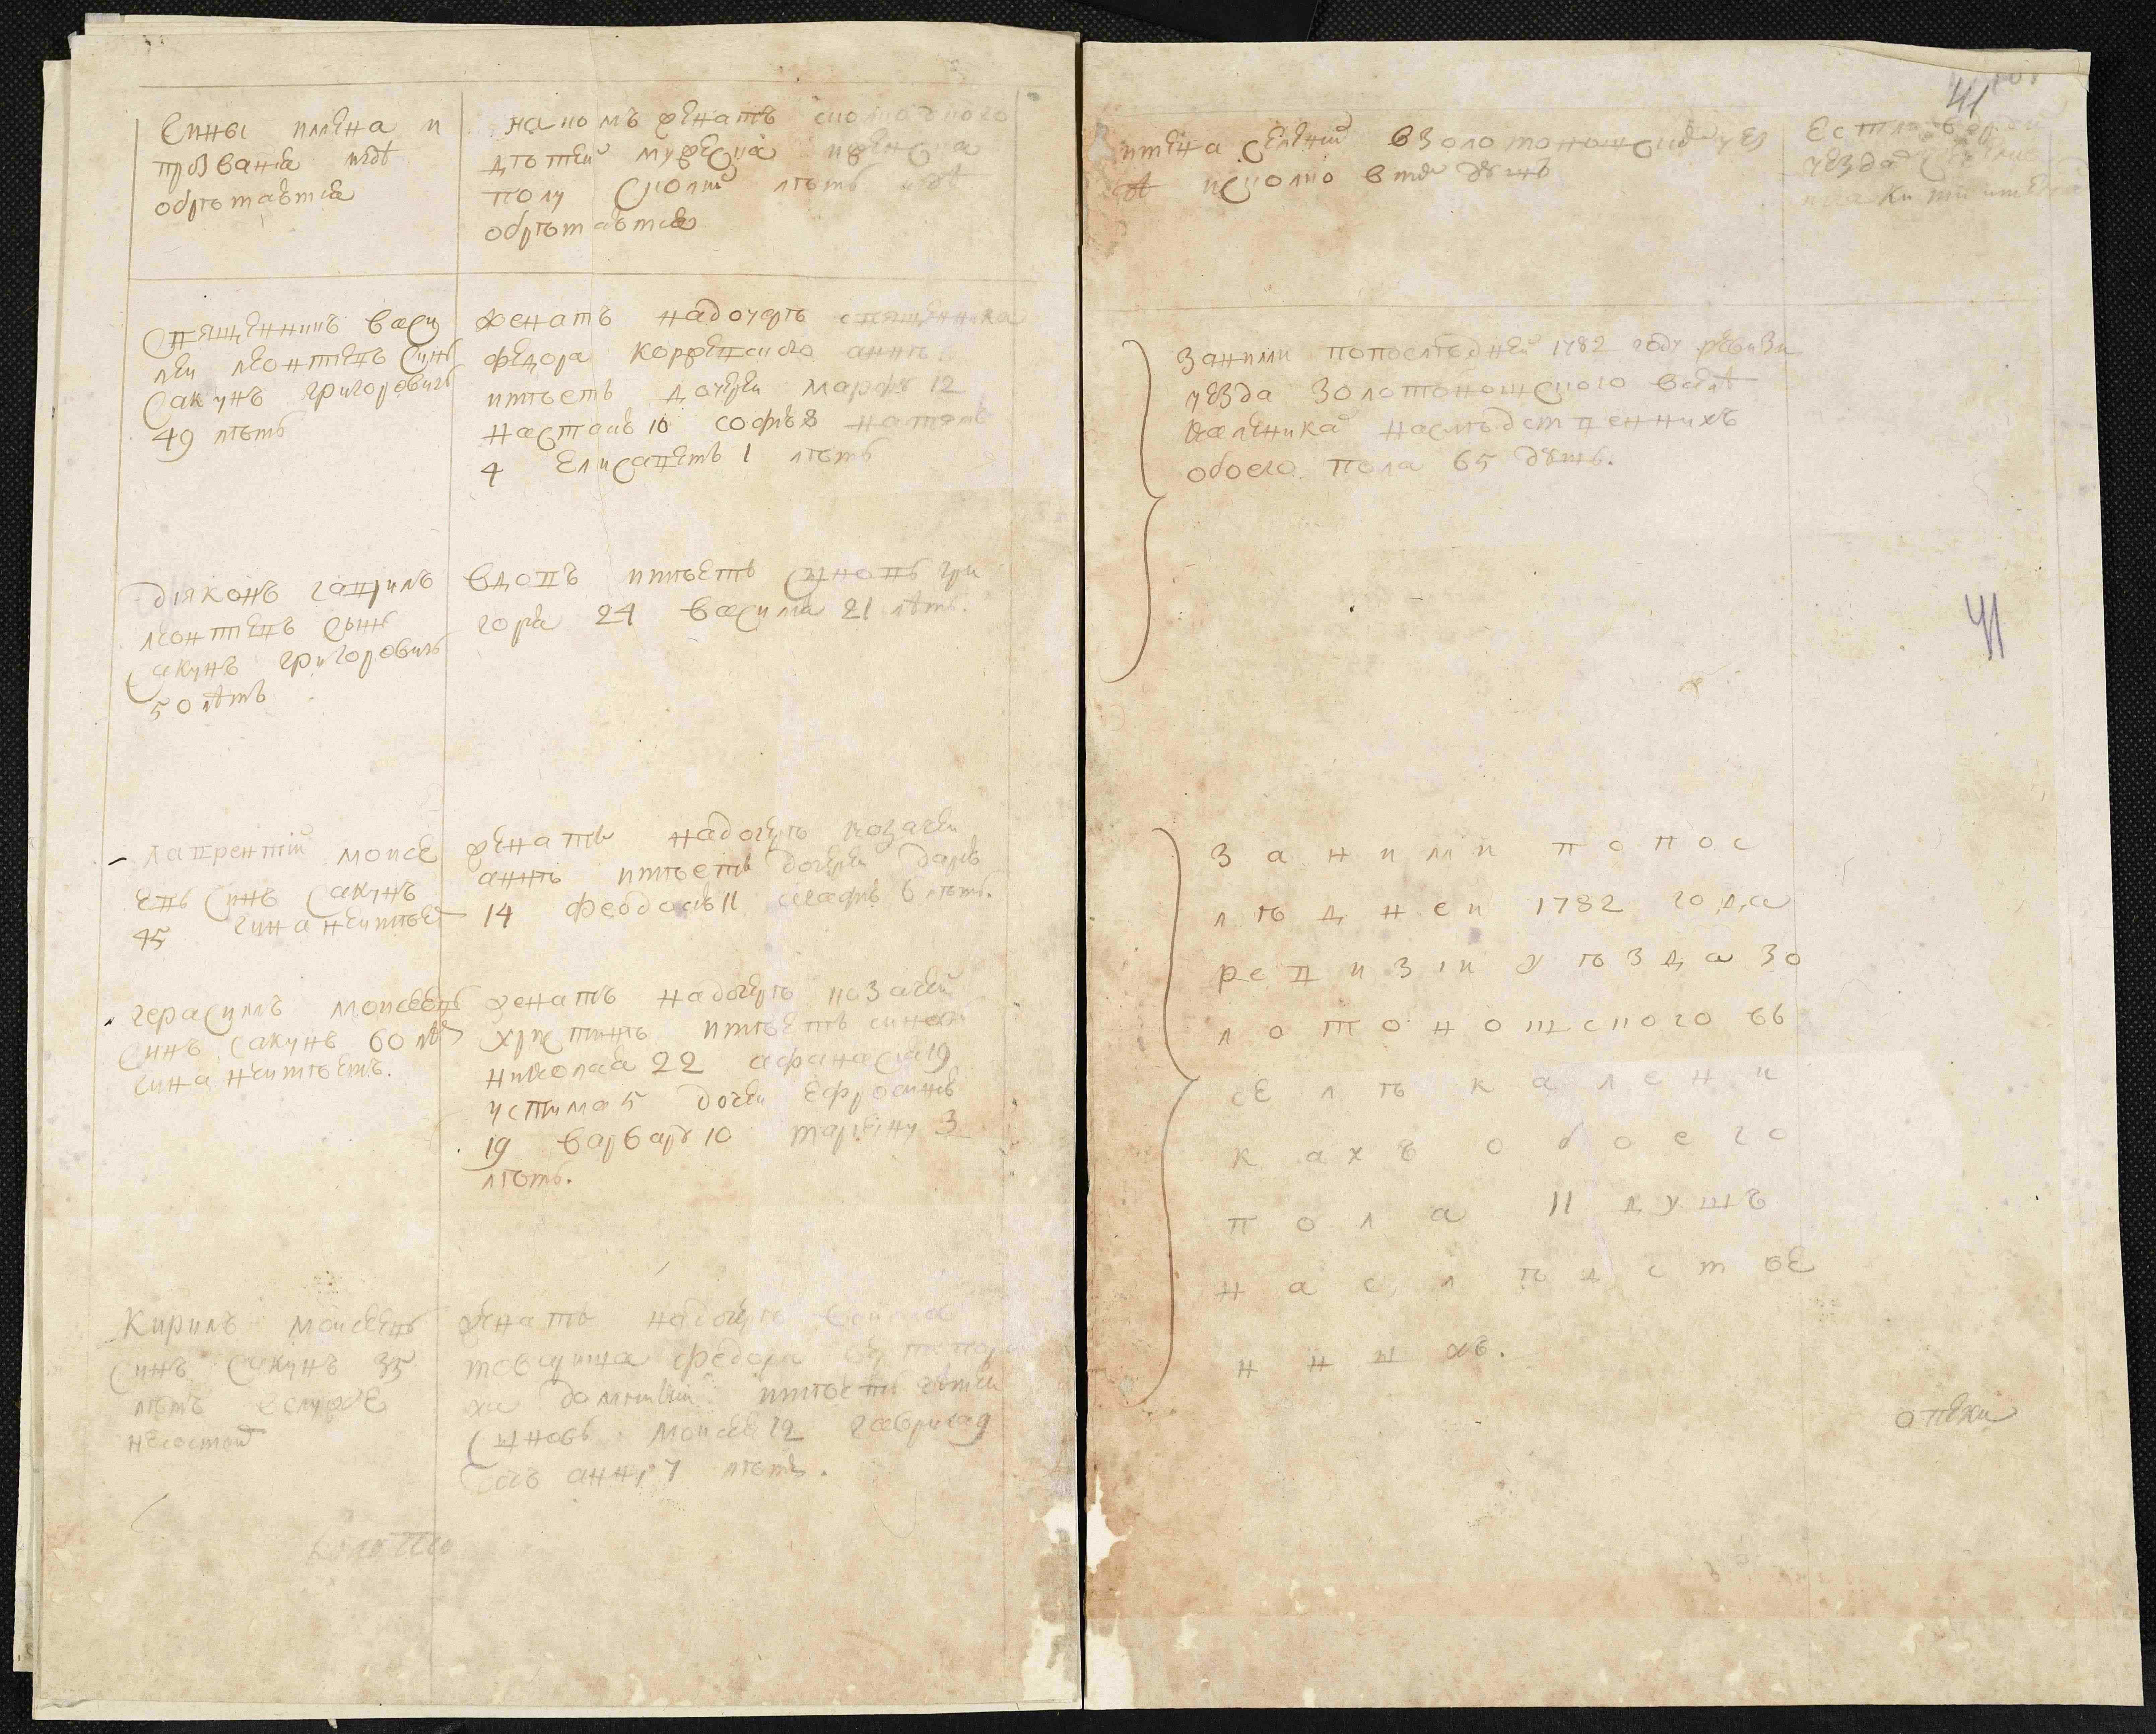 Чины имена и
прозвания где
обрѣтается
на комъ женатъ сколко оного
дѣтей мужеска и женска
полу сколк лѣтъ и где
обрѣтается
Священникъ Васи
лей Леонтевъ синъ
Сакунъ Григоровичъ
49 лѣтъ
женатъ на дочерѣ священника
Федора Корженского Аннѣ.
имѣетъ дочерей Марфу 12
Настаю 10 Софю 8
4 Елисаветъ 1 лѣтъ
Діяконъ Гаврилъ
Леонтевъ сынъ
Сакунъ Григоровичъ
50 лѣтъ
вдовъ имѣетъ сыновъ Гри
гора 24 Василя 21 лѣтъ.
Лаврентій Моисе
евъ синъ Сакунъ
45 чина неимѣет
женатъ на дочерѣ козачей
Аннѣ имѣетъ дочерей Дарю
14 Феодосю 11 Агафю 6 лѣтъ.
Герасимъ Моисеевъ
синъ Сакунъ 60 лѣт
чина неимѣетъ.
женатъ на дочерѣ козачей
Христинѣ имѣетъ синов
Николая 22 Афанасия 19
Устима 5 дочки Ефросиню
19 Варвару 10 Марину 3
лѣтъ.
Кирилъ Моисеевъ
синъ Сакунъ 35
лѣтъ в служе
несостоит
женатъ на дочерѣ
товарища Федора
ха имѣетъ дѣтей
сыновъ Моисея 12 Гаврила 9
Анну 7 лѣтъ.
41
имена селений в Золотоношском уез
де и сколко в них душъ
Естли в других
уездах
имена
За ними по последней 1782 году ревизи
уезда Золотоношского в селе
Каленика наслѣдственнихъ
обоего пола 65 душъ.
41
За ними по пос
лѣдней 1782 года
ревизіи уѣзда Зо
лотоношского въ
селѣ Калени
кахъ обоего
пола 11 душъ
наслѣдстве
нныхъ.
опеки